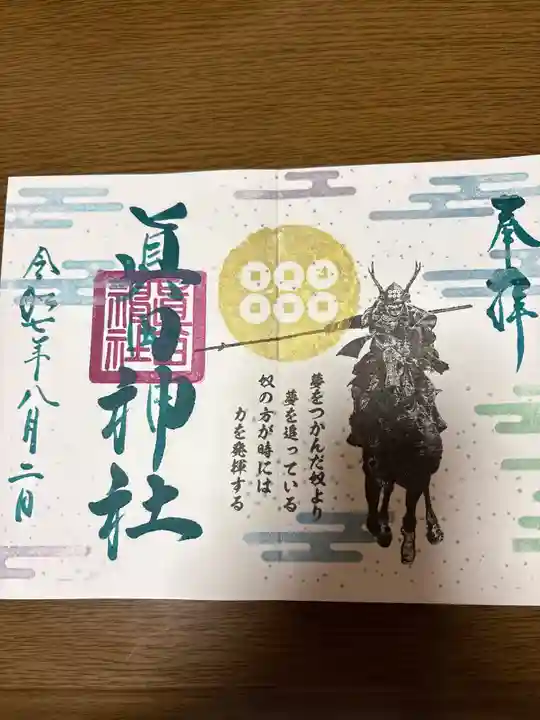 奉拝
夢をつかんだ奴より
夢を追っている
奴の方が時には
力を発揮する
眞田神社
令和七年八月二日